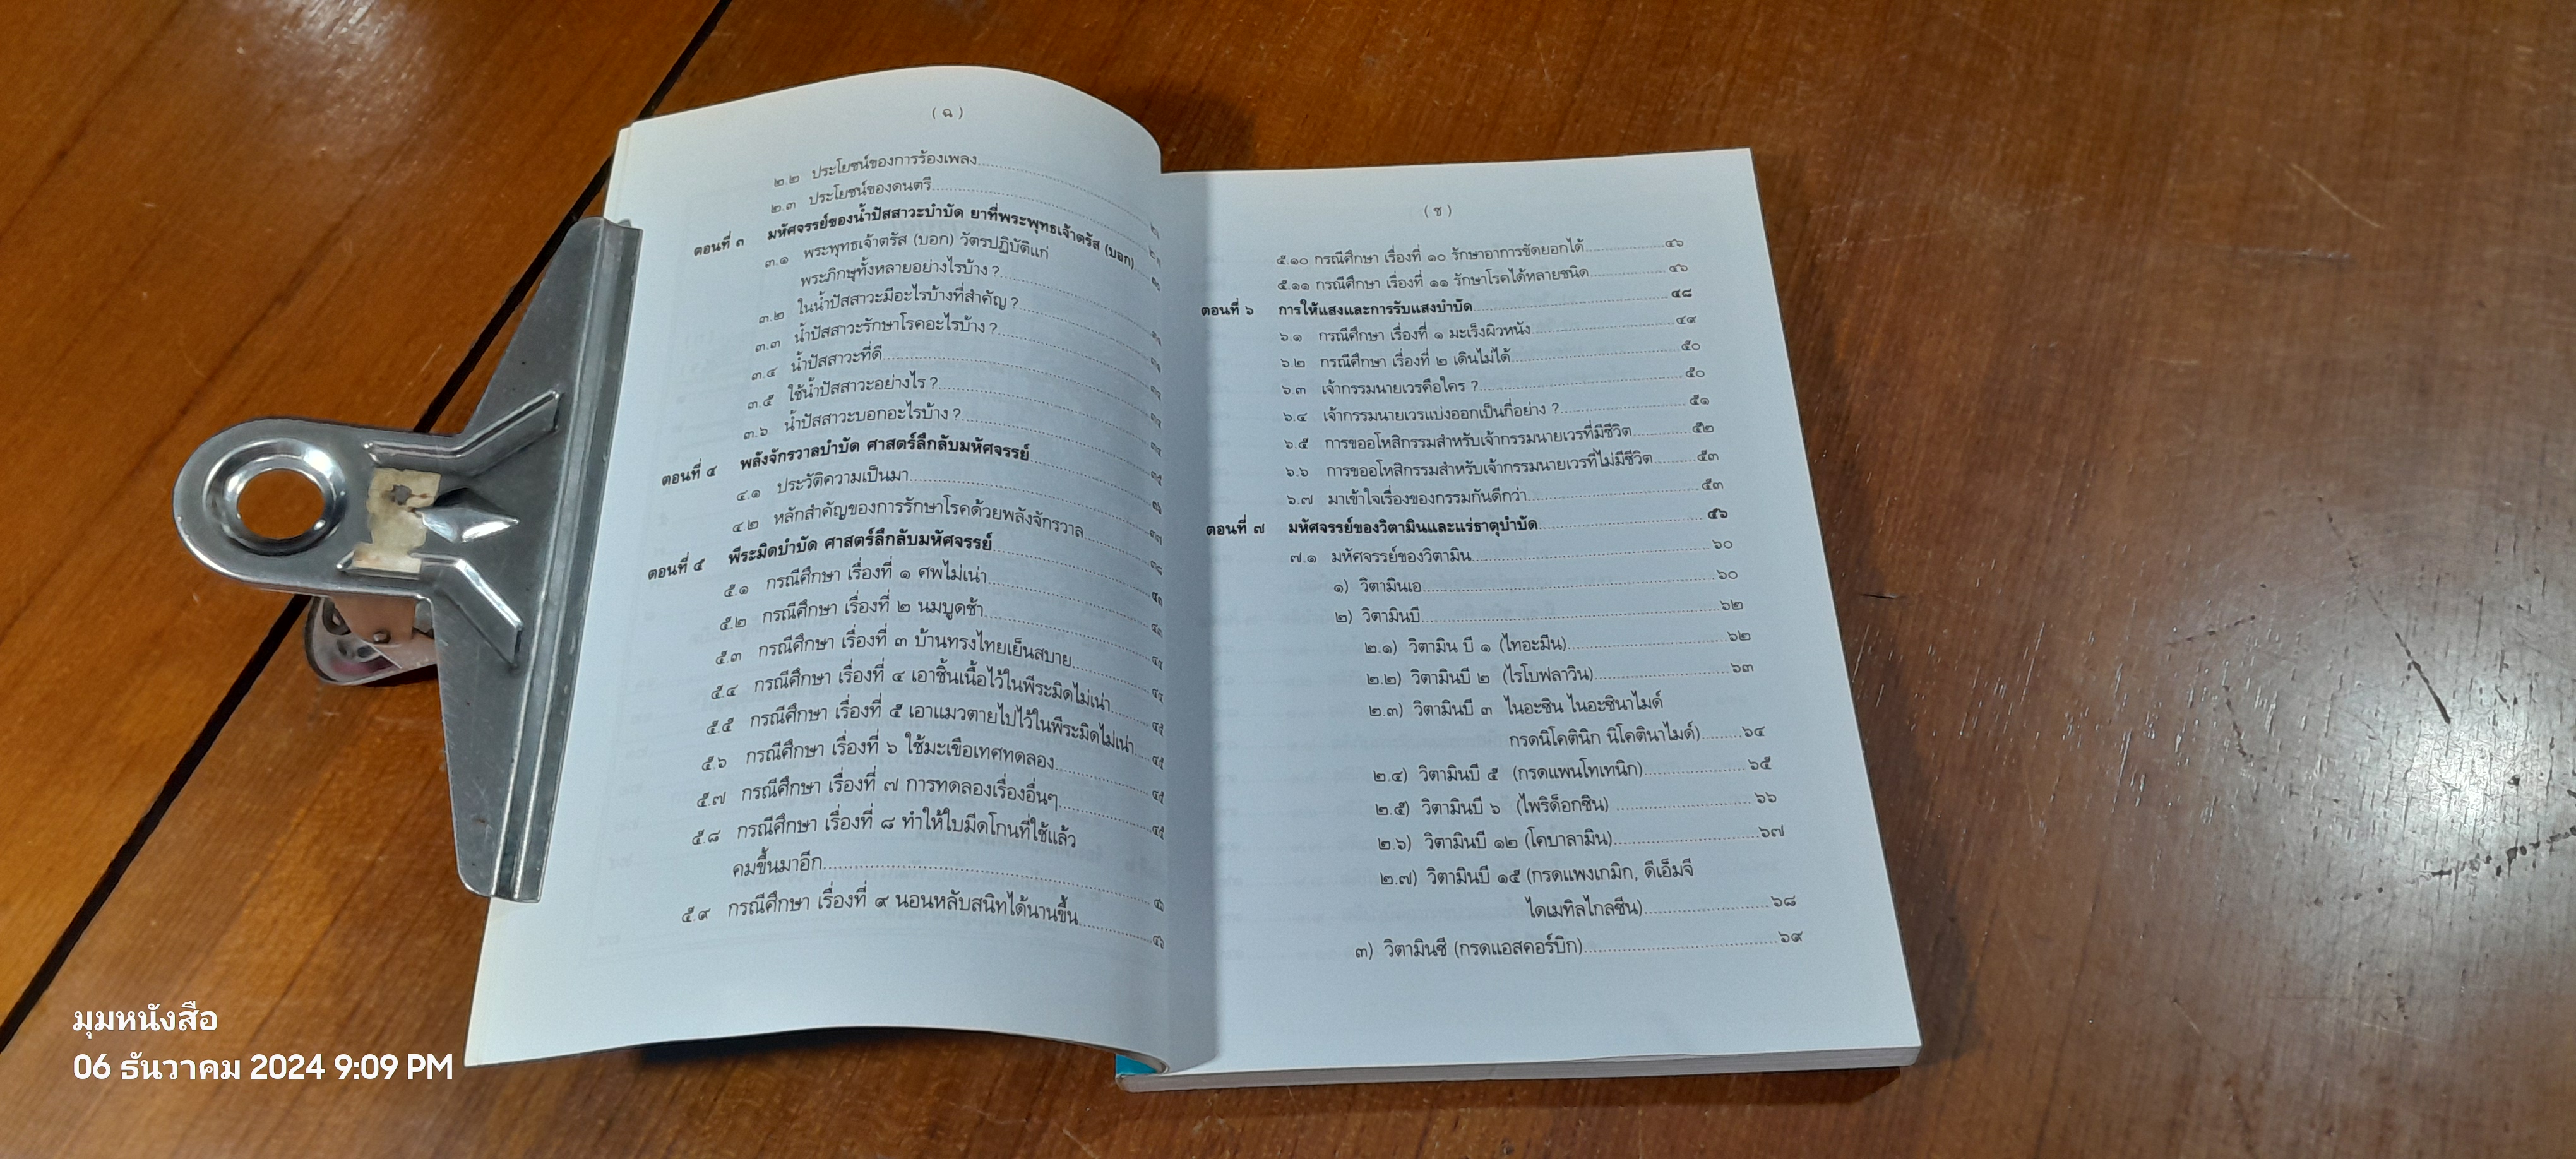 ( ฉ )
๒.๒ ประโยชน์ของการร้องเพลง
๒.๓ ประโยชน์ของดนตรี
ตอนที่ ๓ มหัศจรรย์ของน้ำปัสสาวะบำบัด ยาที่พระพุทธเจ้าตรัส (บอก)
๓.๑ พระพุทธเจ้าตรัส (บอก) วัตรปฏิบัติแก่
พระภิกษุทั้งหลายอย่างไรบ้าง ?
๓.๒ ในน้ำปัสสาวะมีอะไรบ้างที่สำคัญ ?
๓.๓ น้ำปัสสาวะรักษาโรคอะไรบ้าง ?
๓.๔ น้ำปัสสาวะที่ดี
๓.๕ ใช้น้ำปัสสาวะอย่างไร ?
๓.๖ น้ำปัสสาวะบอกอะไรบ้าง ?
ตอนที่ ๔ พลังจักรวาลบำบัด ศาสตร์ลึกลับมหัศจรรย์
๔.๑ ประวัติความเป็นมา
๔.๒ หลักสำคัญของการรักษาโรคด้วยพลังจักรวาล
ตอนที่ ๕ พีระมิดบำบัด ศาสตร์ลึกลับมหัศจรรย์
๕.๑ กรณีศึกษา เรื่องที่ ๑ ศพไม่เน่า
๕.๒ กรณีศึกษา เรื่องที่ ๒ นมบูดช้า
๕.๓ กรณีศึกษา เรื่องที่ ๓ บ้านทรงไทยเย็นสบาย
๕.๔ กรณีศึกษา เรื่องที่ ๔ เอาชิ้นเนื้อไว้ในพีระมิดไม่เน่า
๕.๕ กรณีศึกษา เรื่องที่ ๕ เอาแมวตายไปไว้ในพีระมิดไม่เน่า
๕.๖ กรณีศึกษา เรื่องที่ ๖ ใช้มะเขือเทศทดลอง
๕.๗ กรณีศึกษา เรื่องที่ ๗ การทดลองเรื่องอื่นๆ
๕.๘ กรณีศึกษา เรื่องที่ ๘ ทำให้ใบมีดโกนที่ใช้แล้ว
คมขึ้นมาอีก
๕.๙ กรณีศึกษา เรื่องที่ ๙ นอนหลับสนิทได้นานขึ้น
( ช )
๕.๑๐ กรณีศึกษา เรื่องที่ ๑๐ รักษาอาการขัดยอกได้ ๔๖
๕.๑๑ กรณีศึกษา เรื่องที่ ๑๑ รักษาโรคได้หลายชนิด ๔๖
ตอนที่ ๖ การให้แสงและการรับแสงบำบัด ๔๘
๖.๑ กรณีศึกษา เรื่องที่ ๑ มะเร็งผิวหนัง ๔๙
๖.๒ กรณีศึกษา เรื่องที่ ๒ เดินไม่ได้ ๕๐
๖.๓ เจ้ากรรมนายเวรคือใคร ? ๕๐
๖.๔ เจ้ากรรมนายเวรแบ่งออกเป็นกี่อย่าง ? ๕๑
๖.๕ การขออโหสิกรรมสำหรับเจ้ากรรมนายเวรที่มีชีวิต ๕๒
๖.๖ การขออโหสิกรรมสำหรับเจ้ากรรมนายเวรที่ไม่มีชีวิต ๕๓
๖.๗ มาเข้าใจเรื่องของกรรมกันดีกว่า ๕๓
ตอนที่ ๗ มหัศจรรย์ของวิตามินและแร่ธาตุบำบัด ๕๖
๗.๑ มหัศจรรย์ของวิตามิน ๖๐
๑) วิตามินเอ ๖๐
๒) วิตามินบี ๖๒
๒.๑) วิตามิน บี ๑ (ไทอะมีน) ๖๒
๒.๒) วิตามินบี ๒ (ไรโบฟลาวิน) ๖๓
๒.๓) วิตามินบี ๓ ไนอะซิน ไนอะซินาไมด์
กรดนิโคตินิก นิโคตินาไมด์) ๖๔
๒.๔) วิตามินบี ๕ (กรดแพนโทเทนิก) ๖๕
๒.๕) วิตามินบี ๖ (ไพริด็อกซิน) ๖๖
๒.๖) วิตามินบี ๑๒ (โคบาลามิน) ๖๗
๒.๗) วิตามินบี ๑๕ (กรดแพงเกมิก, ดีเอ็มจี
ไดเมทิลไกลซีน) ๖๘
๓) วิตามินซี (กรดแอสคอร์บิก) ๖๙
มุมหนังสือ
06 ธันวาคม 2024 9:09 PM